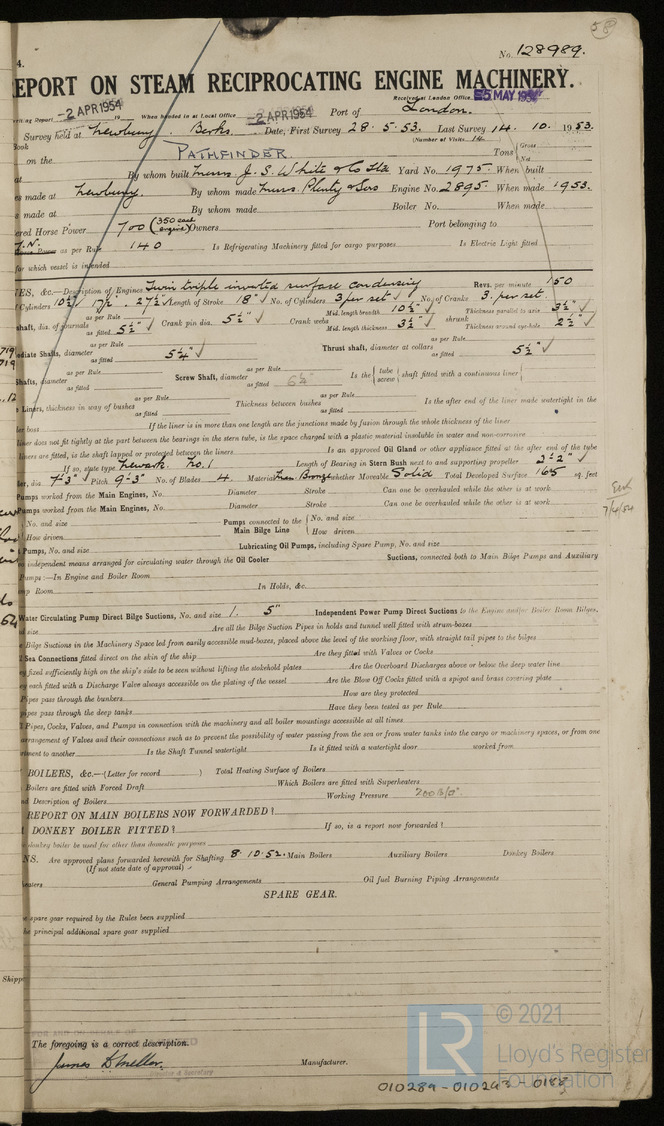 58
4.
No. 128989.
EPORT ON STEAM RECIPROCATING ENGINE MACHINERY.
Received at London Office 5 MAY 1954
riting Report -2 APR 1954 19 When handed in at Local Office -2 APR 1954 Port of London.
Survey held at Newbury. Berks. Date, First Survey 28.5.53. Last Survey 14. 10. 1953.
Book (Number of Visits. 14.
on the PATHFINDER Tons { Gross Net
at By whom built Messrs. J. S. White & Co Ltd Yard No. 1975. When built
es made at Newbury. By whom made Messrs. Plenty & Sons Engine No. 2895. When made 1953.
s made at By whom made Boiler No. When made
ered Horse Power 700 (350 each engine) Owners Port belonging to
Power as per Rule 140 Is Refrigerating Machinery fitted for cargo purposes Is Electric Light fitted
for which vessel is intended
ES, &c.—Description of Engines Twin triple inverted surface condensing Revs. per minute 150
Cylinders 10½" 17½". 27½" Length of Stroke 18" No. of Cylinders 3 per set No. of Cranks 3. per set
shaft, dia. of journals as per Rule as fitted 5½" Crank pin dia. 5½" Crank webs Mid. length breadth 10½" Mid. length thickness 3½" shrunk Thickness parallel to axis 3½" Thickness around eye-hole 2½"
719
719
ediate Shafts, diameter as per Rule as fitted 5¼" Thrust shaft, diameter at collars as per Rule as fitted 5½"
Shafts, diameter as per Rule as fitted Screw Shaft, diameter as per Rule as fitted Is the { tube screw } shaft fitted with a continuous liner {
e Liners, thickness in way of bushes as per Rule as fitted Thickness between bushes as per Rule as fitted Is the after end of the liner made watertight in the
ler boss If the liner is in more than one length are the junctions made by fusion through the whole thickness of the liner
liner does not fit tightly at the part between the bearings in the stern tube, is the space charged with a plastic material insoluble in water and non-corrosive
liners are fitted, is the shaft lapped or protected between the liners Is an approved Oil Gland or other appliance fitted at the after end of the tube
If so, state type Newark. No. 1 Length of Bearing in Stern Bush next to and supporting propeller 2'-2"
er, dia. 7'-3" Pitch 9'-3" No. of Blades 4. Material Man. Bronze whether Moveable Solid Total Developed Surface 16.5 sq. feet
Pumps worked from the Main Engines, No. Diameter Stroke Can one be overhauled while the other is at work
Pumps worked from the Main Engines, No. Diameter Stroke Can one be overhauled while the other is at work
7/4/54
No. and size Pumps connected to the Main Bilge Line { No. and size
How driven How driven
Pumps, No. and size Lubricating Oil Pumps, including Spare Pump, No. and size
o independent means arranged for circulating water through the Oil Cooler Suctions, connected both to Main Bilge Pumps and Auxiliary
Pumps:—In Engine and Boiler Room
np Room In Holds, &c.
Water Circulating Pump Direct Bilge Suctions, No. and size 1. 5" Independent Power Pump Direct Suctions to the Engine and/or Boiler Room Bilges,
nd size Are all the Bilge Suction Pipes in holds and tunnel well fitted with strum-boxes
Bilge Suctions in the Machinery Space led from easily accessible mud-boxes, placed above the level of the working floor, with straight tail pipes to the bilges
Sea Connections fitted direct on the skin of the ship Are they fitted with Valves or Cocks
y fixed sufficiently high on the ship's side to be seen without lifting the stokehold plates Are the Overboard Discharges above or below the deep water line
y each fitted with a Discharge Valve always accessible on the plating of the vessel Are the Blow Off Cocks fitted with a spigot and brass covering plate
Pipes pass through the bunkers How are they protected
pipes pass through the deep tanks Have they been tested as per Rule
Pipes, Cocks, Valves, and Pumps in connection with the machinery and all boiler mountings accessible at all times
rrangement of Valves and their connections such as to prevent the possibility of water passing from the sea or from water tanks into the cargo or machinery spaces, or from one
rtment to another Is the Shaft Tunnel watertight Is it fitted with a watertight door worked from
BOILERS, &c.—(Letter for record ) Total Heating Surface of Boilers
Boilers are fitted with Forced Draft Which Boilers are fitted with Superheaters
nd Description of Boilers Working Pressure 200
REPORT ON MAIN BOILERS NOW FORWARDED?
DONKEY BOILER FITTED? If so, is a report now forwarded?
donkey boiler be used for other than domestic purposes
NS. Are approved plans forwarded herewith for Shafting 8.10.52. Main Boilers Auxiliary Boilers Donkey Boilers
(If not state date of approval)
heaters General Pumping Arrangements Oil fuel Burning Piping Arrangements
SPARE GEAR.
e spare gear required by the Rules been supplied
he principal additional spare gear supplied
Shippe
The foregoing is a correct description.
Manufacturer.
LR © 2021 Lloyd's Register Foundation
010289-010293-0188